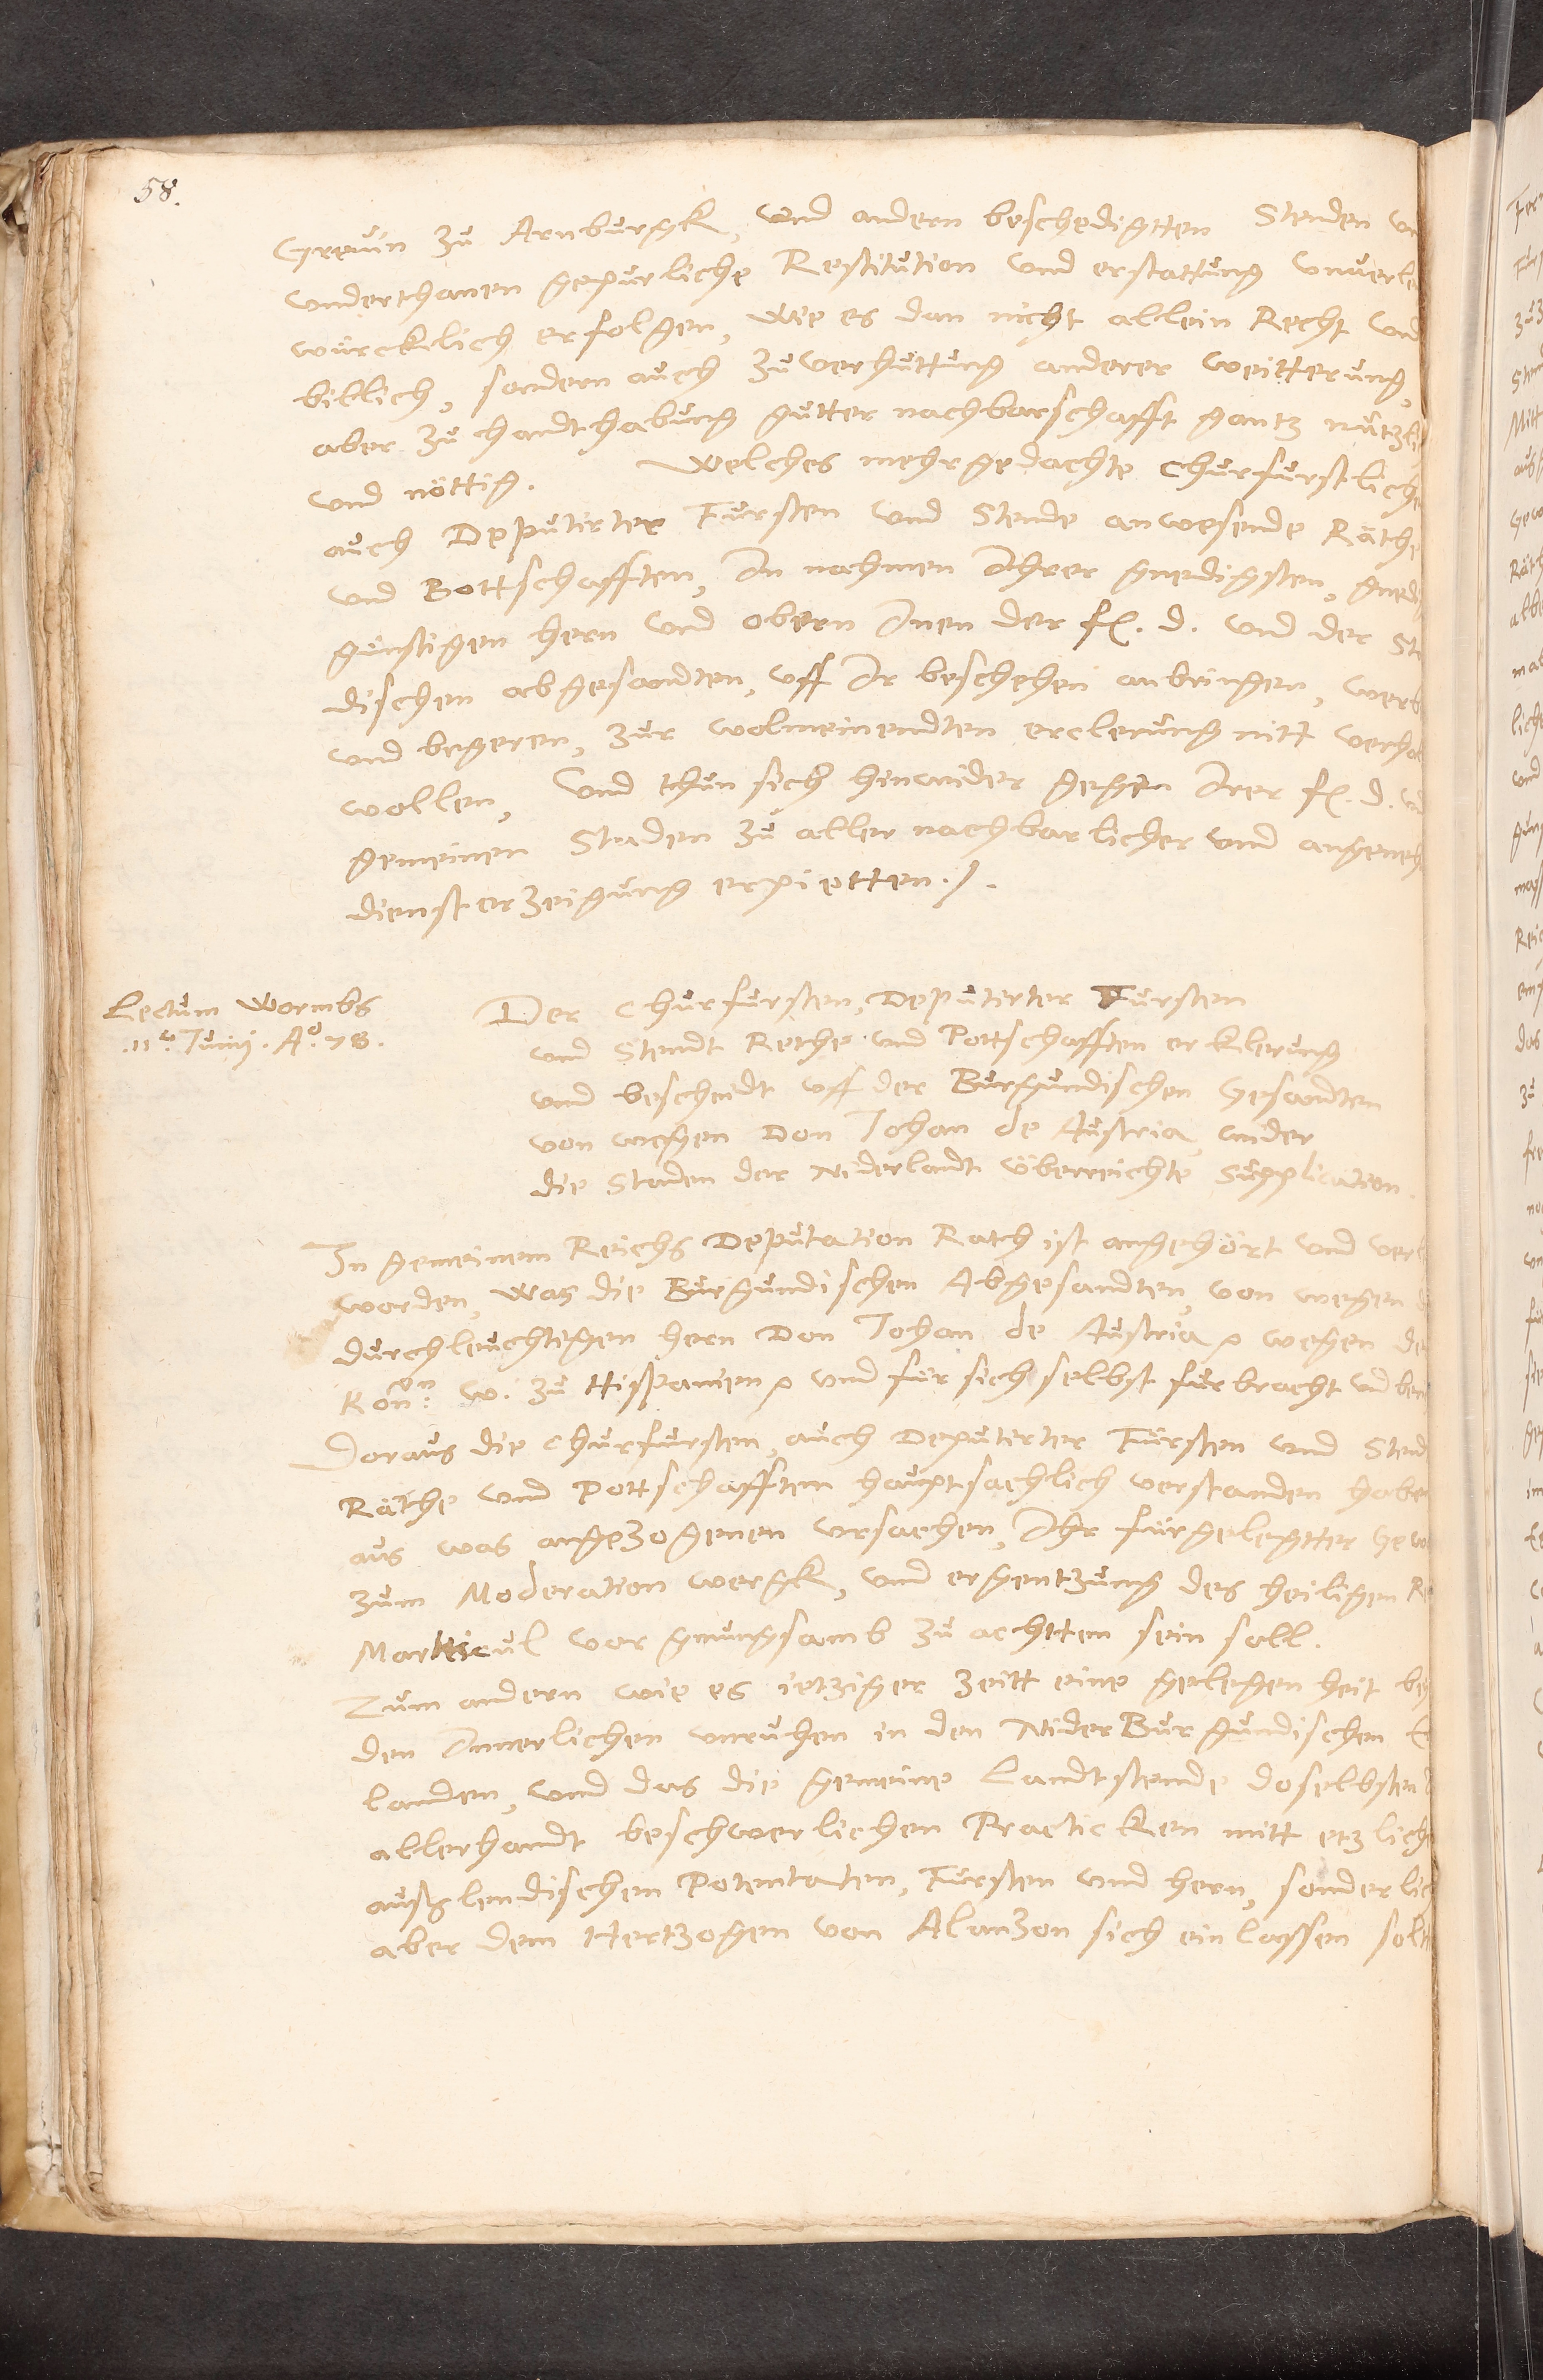 58.
Greuin zu Arnburgk, und andern beschedigtten Stenden vn
underthanen gepurliche Restitution und erstattung unverle
würcklich erfolgen, Wie es dan nicht allein Recht und
billich, sondern auch zuverhuttung anderer weitterung,
aber zu handthabung gutter nachbarschafft gantz nutzli
und nöttig. Welches mehrgedachte Churfurstliche
auch Deputirter Fursten und Stende anwesende Räthe
und Bottschafften, In nahmen Ihrer gnedigsten, gned
günstigen hern und obern Inen der fr. d. und der Sta
dischen abgesandten, uff Ir beschehen anbringen, werb
und begeren, zur wolmeinendten erclerung nitt verhal
wollen, Und thun sich hinwider gegen Irer fr. d. vn
gemeinen Staden zu aller nachbarlicher und angeneh
dienst erzeigung erpietten ./.
Lectum Wormbs
.11. Junij. Aº. 78.
Der Churfursten, Deputirter Fursten
und Stendt Rethe und Pottschafften erklerung
und bescheidt uff der Burgundischen Gesandten
von wegen Don Johan de Austria, wider
die Staden der Niderlandt überreichte Supplication.
In gemeinem Reichs Deputation Rath ist angehört und verl
worden, was die Burgundischen Abgesandten, von wegen d
durchleuchtigen hern Don Johan de Austria wegen de
Kön: w. zu Hispanien und für sich selbst furbracht und ber
Doraus die Churfursten, auch Deputirter Fürsten und Stend
Räthe und Pottschafften hauptsachlich verstanden habe
aus was angezogenen ursachen, Ihr fürgelegtter Gewa
zum Moderation wergk, und ergentzung des heiligen Re
Marticul vor gnungsamb zu achtten sein soll.
Zum andern wie es ietziger zeitt eine gelegenheit bey
den Innerlichen unruhen in den NiderBurgundischen E
landen, und das die gemeine Landtstende doselbsten
allerhandt beschwerlichen Practicken mitt etzliche
auslendischen Potentaten, Fürsten und hern, sonderlich
aber dem Hertzogen von Alanzon sich einlassen solt